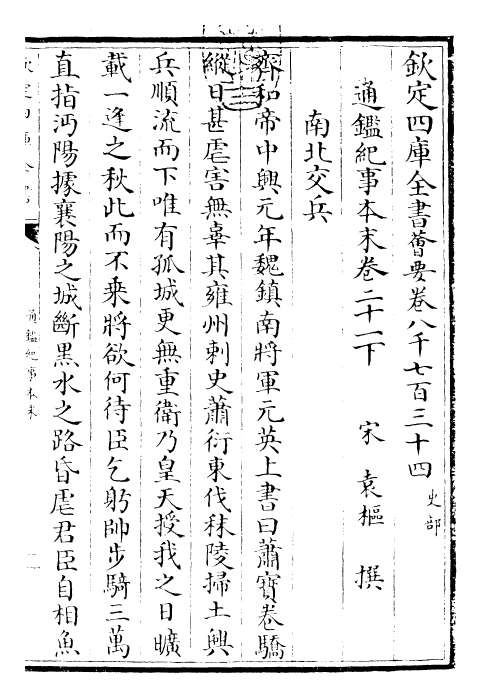 欽定四庫全書薈要卷八千七百三十四　史部
通鑑紀事本末卷二十一下　宋　袁樞　撰
南北交兵
齊和帝中興元年魏鎮南將軍元英上書曰蕭寶卷驕
縱日甚虐害無辜其雍州刺史蕭衍東伐秣陵掃土興
兵順流而下唯有孤城更無重衛乃皇天授我之日曠
載一逢之秋此而不乗將欲何待臣乞躬帥步騎三萬
直指沔陽據襄陽之城斷黑水之路昏虐君臣自相魚
通鑑紀事本末
一